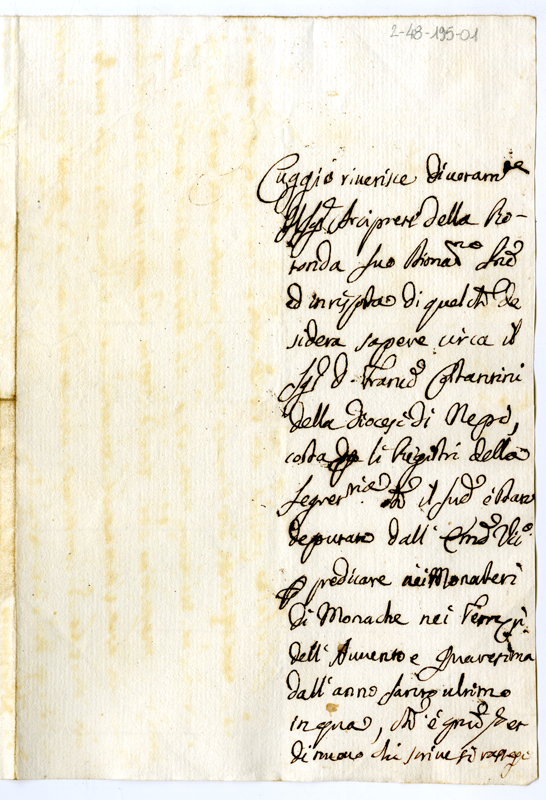 2-48-195-01
Cuggiò riverisce divotam.te
Il Sig.r Arciprete della Ro-
tonda suo P̃rõn
ed in risp̃ta di quel che de
sidera sapere circa il
Sig.r D. Franc.o Costantini
della Diocesi di Nepi,
costa li Registri della
Segret.ria che il sud.o è stato
deputato dall' Em̃o Vic.o
p predicare nei Monasteri
di Monache nei
dell' Avvento e Quaresima
dall' anno ultimo
in qua, che è q.to
di nuovo chi scrive si